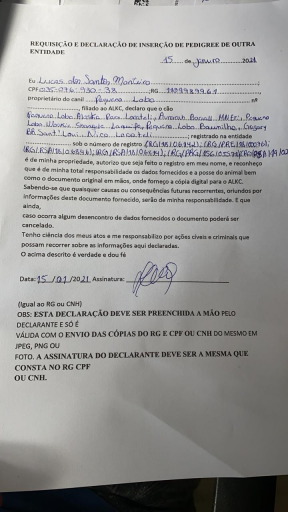 REQUISIÇÃO E DECLARAÇÃO DE INSERÇÃO DE PEDIGREE DE OUTRA
ENTIDADE
15 de janeiro 2021
Eu Lucas dos Santos Monteiro
CPF RG
proprietário do canil Pequeno Lobo nº
, filiado ao ALKC, declaro que o cão
Pequeno Lobo
Lobo
, registrado na entidade
sob o numero de registro
é de minha propriedade, autorizo que seja feito o registro em meu nome, e reconheço
que é de minha total responsabilidade os dados fornecidos e a posse do animal bem
como o documento original em mãos, onde forneço a cópia digital para o ALKC.
Sabendo-se que quaisquer causas ou consequências futuras recorrentes, oriundos por
informações deste documento fornecido, serão de minha responsabilidade. E que
ainda,
caso ocorra algum desencontro de dados fornecidos o documento poderá ser
cancelado.
Tenho ciência dos meus atos e me responsabilizo por ações civeis e criminais que
possam recorrer sobre as informações aqui declaradas.
O acima descrito é verdade e dou fé
Data: 15 /01/2021 Assinatura:
(Igual ao RG ou CNH)
OBS: ESTA DECLARAÇÃO DEVE SER PREENCHIDA A MÃO PELO
DECLARANTE E SÓ É
VÁLIDA COM O ENVIO DAS CÓPIAS DO RG E CPF OU CNH DO MESMO EM
JPEG, PNG OU
FOTO. A ASSINATURA DO DECLARANTE DEVE SER A MESMA QUE
CONSTA NO RG CPF
OU CNH.